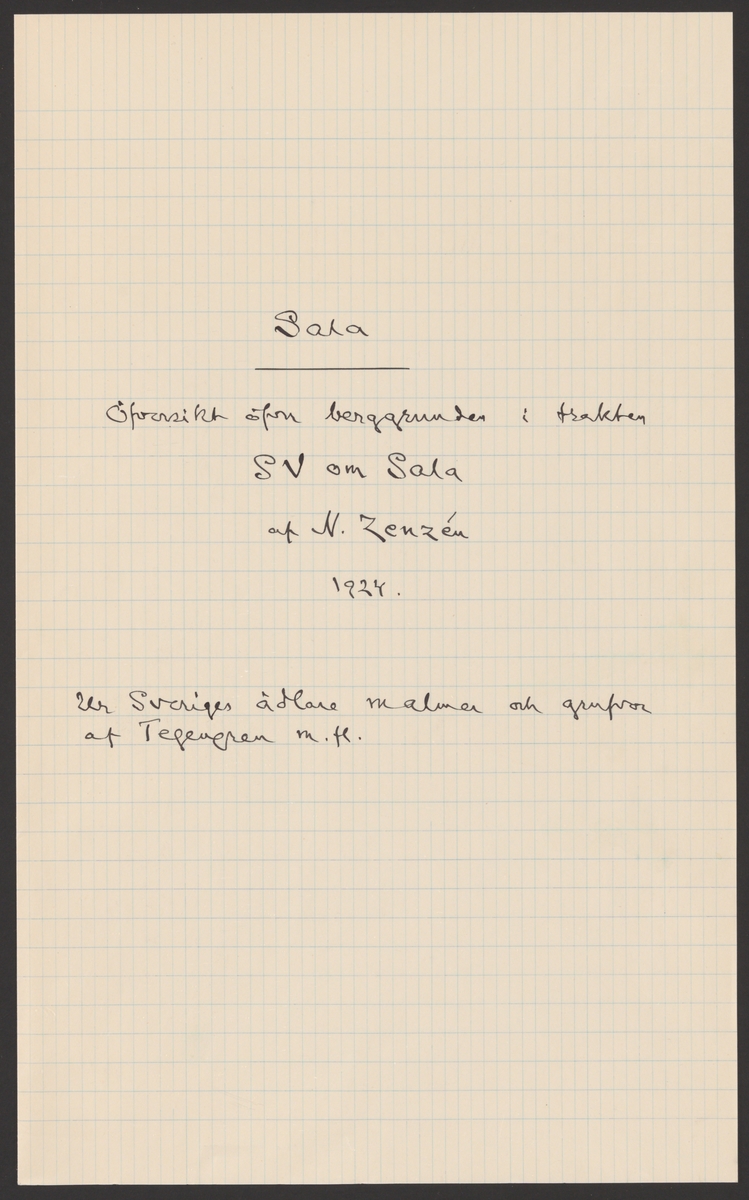 Sala
Öfversikt öfver berggrunden i trakten
SV om Sala
af N. Zenzén
1924.
Ur Sveriges ädlare malmer och grufvor
af Tegengren m.fl.